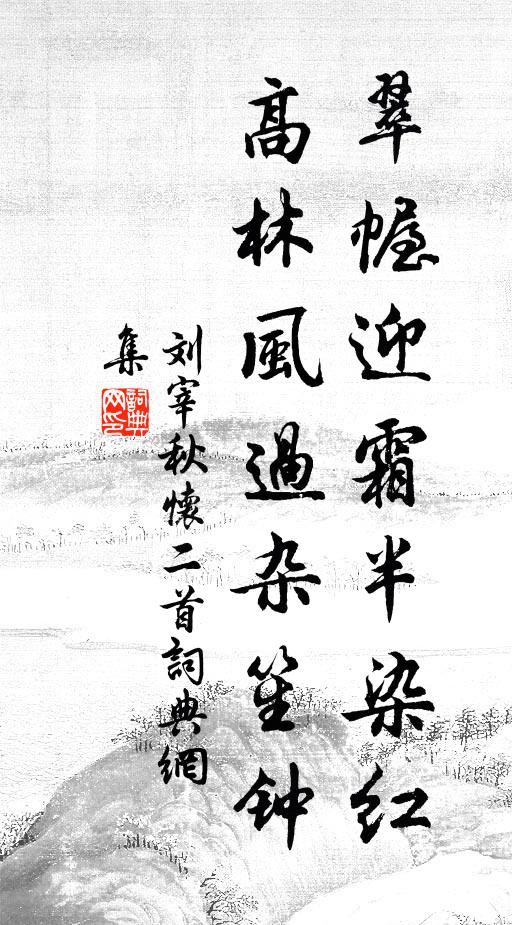 翠幄迎霜半染红
高林風過杂笙钟
刘宰秋懷二首詞典網
集
詞典网印